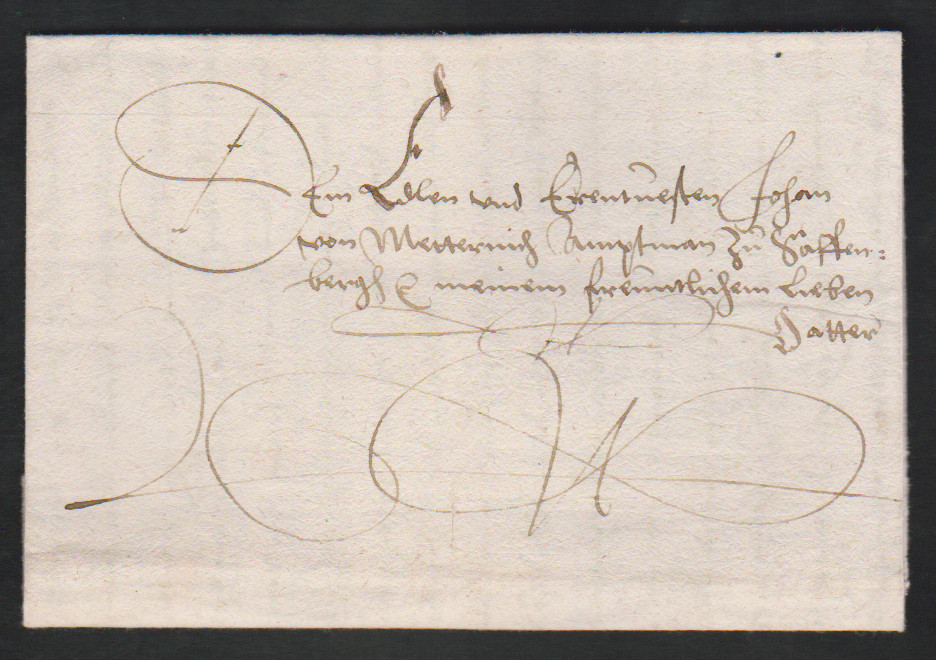 Dem Edlen vnd Erentuesten Johan
von Metternich Amptman zů Saffen=
bergh meinem freuntlichem Lieben
Vatter